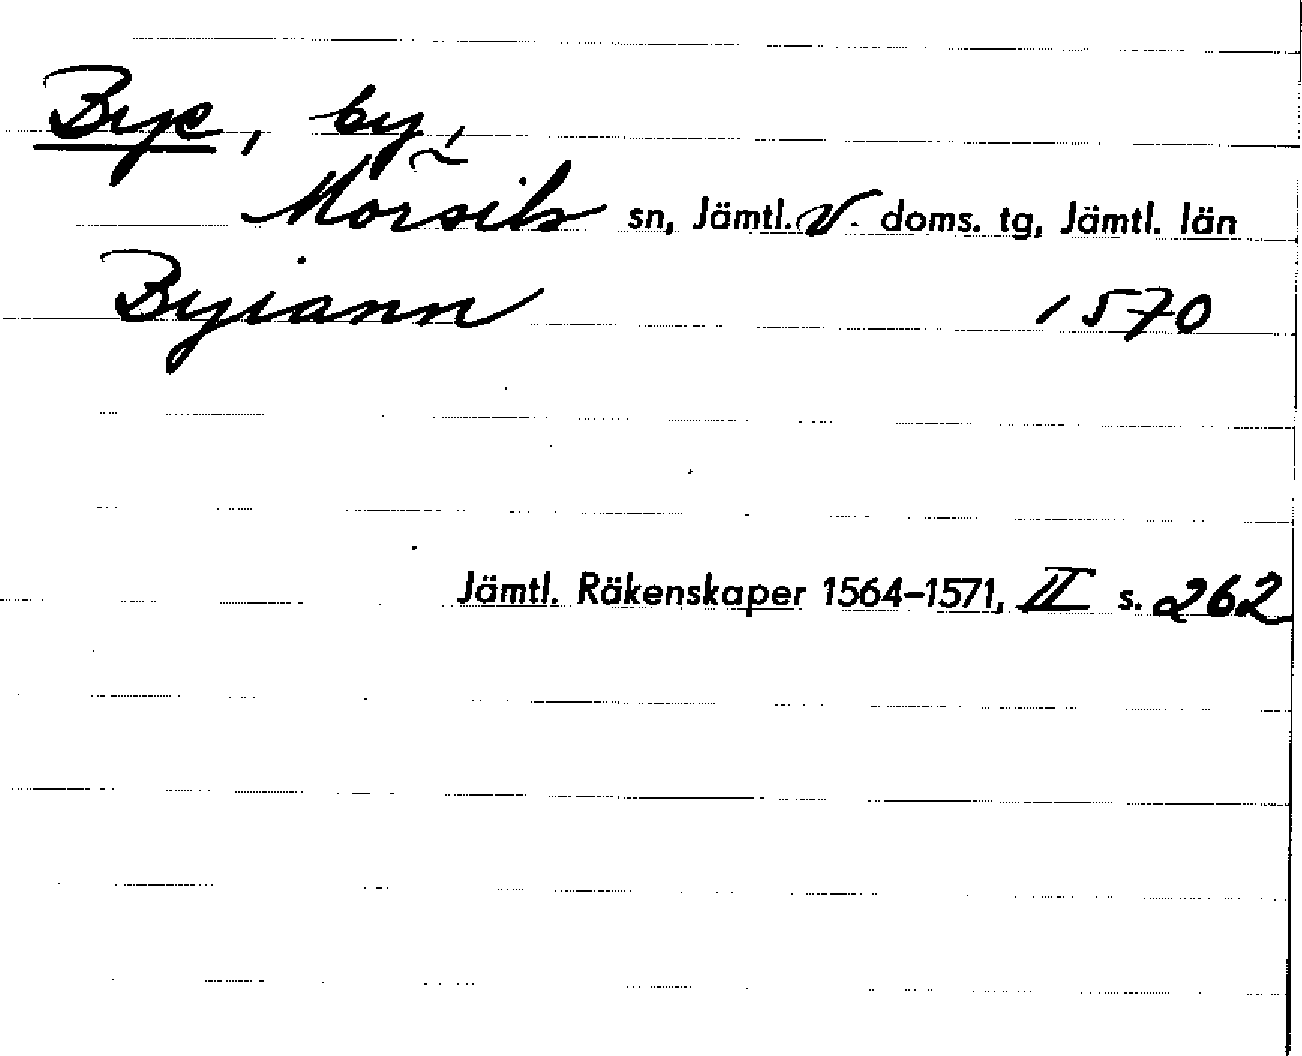 Bye, by,
Mörsils sn, Jämtl. V. doms. tg, Jämtl. län
Byiann 1570
Jämtl. Räkenskaper 1564-1571, II s. 262